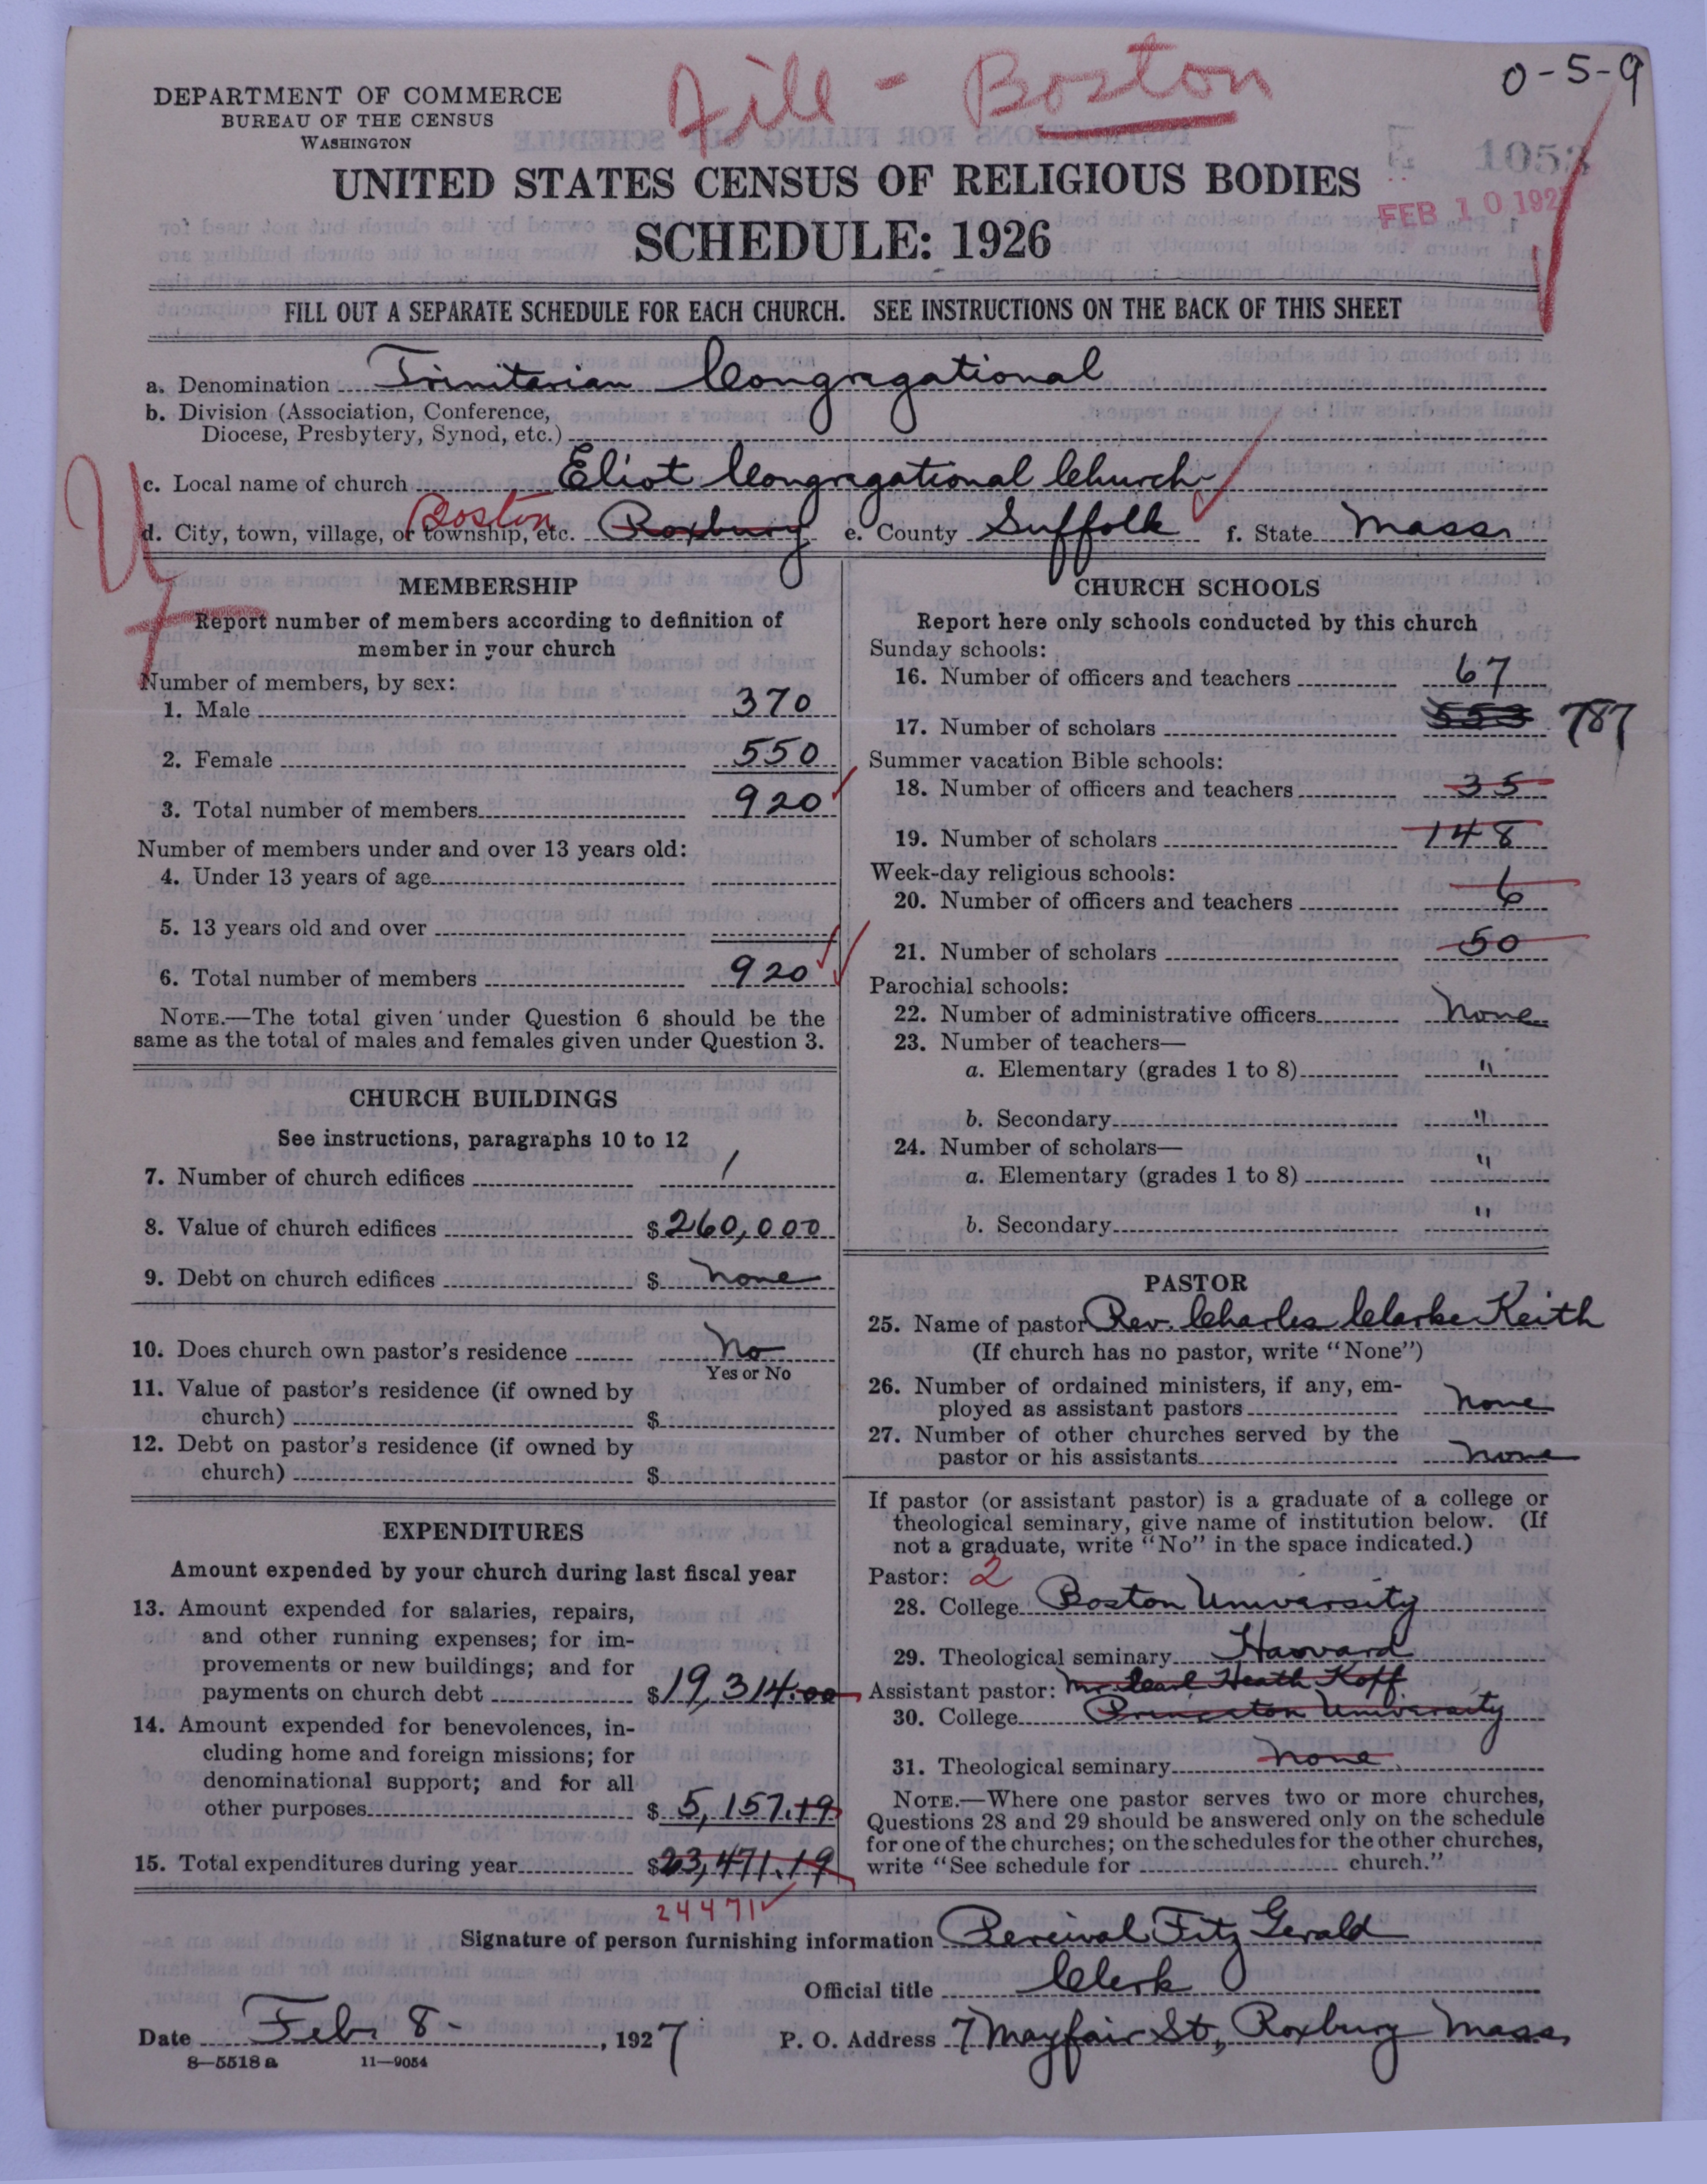 Fill - Boston
0-5-9
DEPARTMENT OF COMMERCE
BUREAU OF THE CENSUS
WASHINGTON
1053
UNITED STATES CENSUS OF RELIGIOUS BODIES
FEB 10 1927
SCHEDULE: 1926
FILL OUT A SEPARATE SCHEDULE FOR EACH CHURCH. SEE INSTRUCTIONS ON THE BACK OF THIS SHEET
a. Denomination Trinitarian Congregational
b. Division (Association, Conference,
Diocese, Presbytery, Synod, etc.)
c. Local name of church Eliot Congregational Church
d. City, town, village, or township, etc. Boston Roxbury e. County Suffolk f. State Mass.
MEMBERSHIP
Report number of members according to definition of
member in your church
Number of members, by sex:
1. Male 370
2. Female 550
3. Total number of members 920
Number of members under and over 13 years old:
4. Under 13 years of age
5. 13 years old and over
6. Total number of members 920
NOTE.—The total given under Question 6 should be the
same as the total of males and females given under Question 3.
CHURCH BUILDINGS
See instructions, paragraphs 10 to 12
7. Number of church edifices 1
8. Value of church edifices $260,000
9. Debt on church edifices $ none
10. Does church own pastor's residence No
Yes or No
11. Value of pastor's residence (if owned by
church) $
12. Debt on pastor's residence (if owned by
church) $
EXPENDITURES
Amount expended by your church during last fiscal year
13. Amount expended for salaries, repairs,
and other running expenses; for im-
provements or new buildings; and for
payments on church debt $19,314.00
14. Amount expended for benevolences, in-
cluding home and foreign missions; for
denominational support; and for all
other purposes $ 5,157.19
15. Total expenditures during year $23,471.19
24471
CHURCH SCHOOLS
Report here only schools conducted by this church
Sunday schools:
16. Number of officers and teachers 67
17. Number of scholars 553 787
Summer vacation Bible schools:
18. Number of officers and teachers 35
19. Number of scholars 148
Week-day religious schools:
20. Number of officers and teachers 6
21. Number of scholars 50
Parochial schools:
22. Number of administrative officers None
23. Number of teachers—
a. Elementary (grades 1 to 8) "
b. Secondary "
24. Number of scholars—
a. Elementary (grades 1 to 8) "
b. Secondary "
PASTOR
25. Name of pastor Rev. Charles Clarke Keith
(If church has no pastor, write "None")
26. Number of ordained ministers, if any, em-
ployed as assistant pastors none
27. Number of other churches served by the
pastor or his assistants none
If pastor (or assistant pastor) is a graduate of a college or
theological seminary, give name of institution below. (If
not a graduate, write "No" in the space indicated.)
Pastor: 2
28. College Boston University
29. Theological seminary Harvard
Assistant pastor: Mr. Heath
30. College Princeton University
31. Theological seminary none
NOTE.—Where one pastor serves two or more churches,
Questions 28 and 29 should be answered only on the schedule
for one of the churches; on the schedules for the other churches,
write "See schedule for church."
Signature of person furnishing information Percival Fitz Gerald
Official title Clerk
Date Feb. 8 - , 1927 P. O. Address 7 Mayfair St., Roxbury Mass.
8—5518 a 11—9054